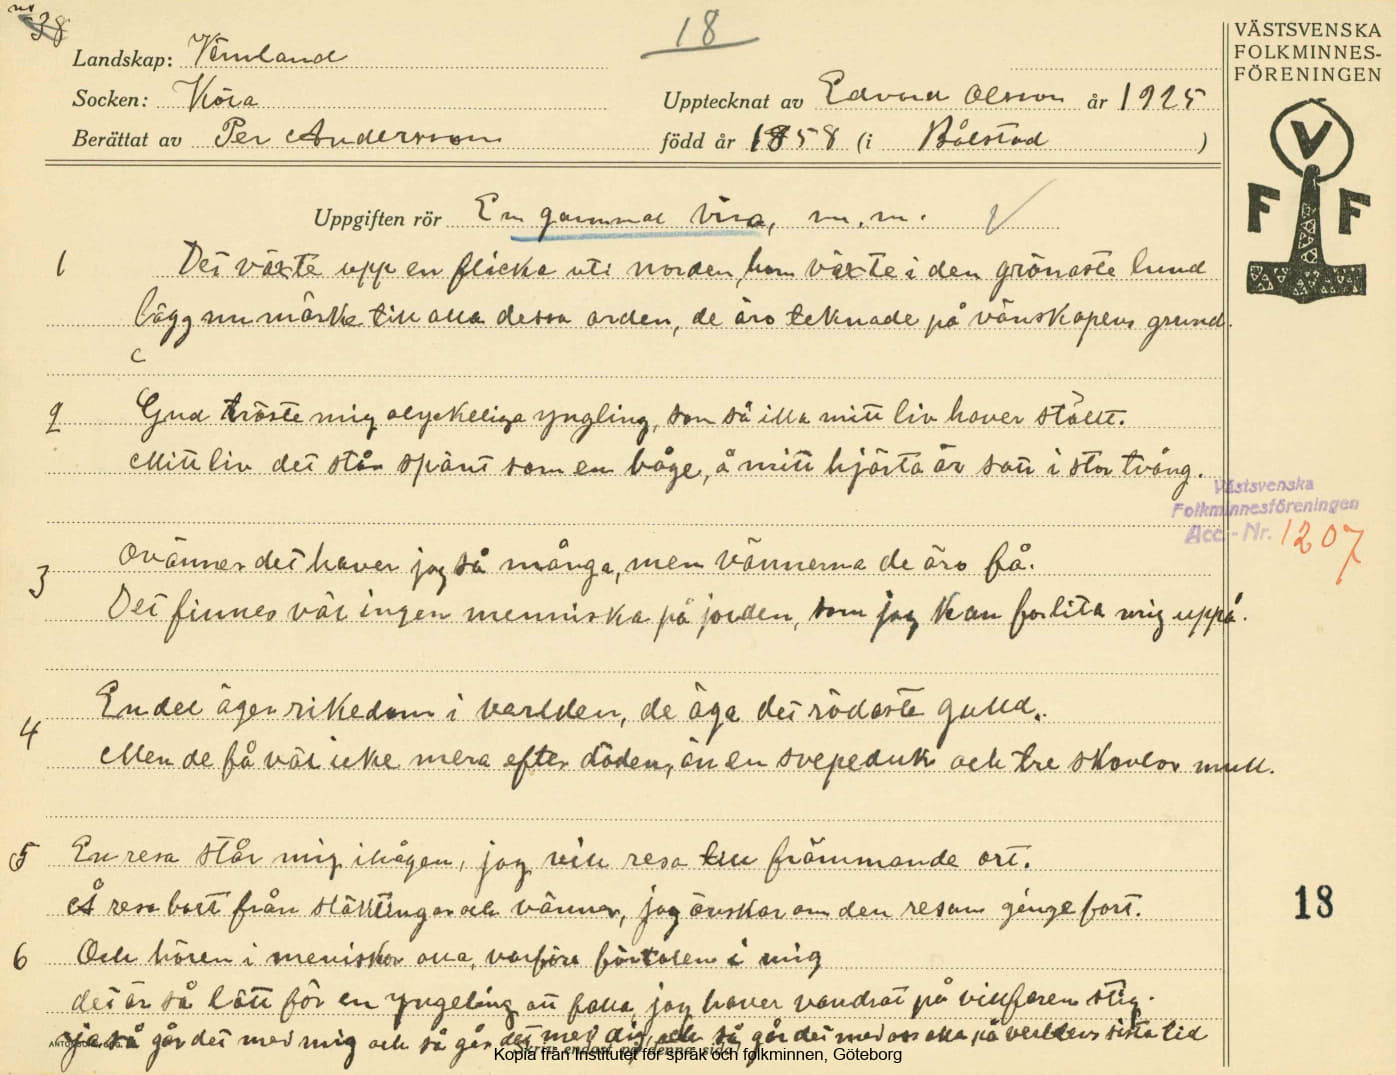 no 38
18
VÄSTSVENSKA
FOLKMINNES-
FÖRENINGEN
Landskap: Värmland
Socken: Köla
Upptecknat av Edvard Olsson år 1925
Berättat av Per Andersson född år 1858 (i Bålstad )
V
F F
Uppgiften rör En gammal visa, m.m.
1 Det växte upp en flicka uti norden, hon växte i den grönaste lund
lägg nu märke till alla dessa orden, de äro teknade på vänskapens grund.
2 Gud tröste mig olyckeliga yngling, som så illa mitt liv haver ställt.
Mitt liv det står spänt som en båge, å mitt hjärta är satt i stor tvång.
Västsvenska
Folkminnesföreningen
Acc.-Nr. 1207
3 Ovänner det haver jag så många, men vännerna de äro få.
Det finnes väl ingen menniska på jorden, som jag kan forlita mig uppå.
4 En del äger rikedom i verlden, de äga det rödaste gulld.
Men de få väl icke mera efter döden, än en svepeduk och tre skovlor mull.
5 En resa står mig ihågen, jag vill resa till främmande ort.
Å resa bort från släktingar och vänner, jag önskar om den resam ginge fort.
18
6 Och hören i meniskor alla, varföre förtalen i mig
det är så lätt för en yngeling att falla, jag haver vandrat på villfaren stig.
ja så går det med mig och så går det med dig, och så går det med oss alla på verldens sista tid
Skriv endast på denna sida!
Kopia från Institutet för språk och folkminnen, Göteborg